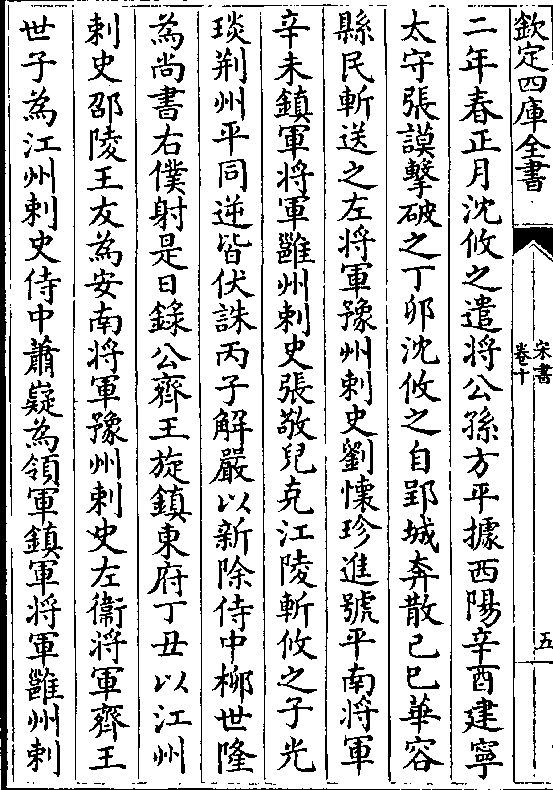 欽定四庫全書
宋書
卷十
五
二年春正月沈攸之遣將公孫方平據西陽辛酉建寧
太守張謨擊破之丁卯沈攸之自郢城奔散己巳華容
縣民斬送之左將軍豫州刺史劉懷珍進號平南將軍
辛未鎮軍將軍雝州刺史張敬兒克江陵斬攸之子光
琰荆州平同逆皆伏誅丙子解嚴以新除侍中柳世隆
為尚書右僕射是日錄公齊王旋鎮東府丁丑以江州
刺史邵陵王友為安南將軍豫州刺史左衞將軍齊王
世子為江州刺史侍中蕭嶷為領軍鎮軍將軍雝州刺